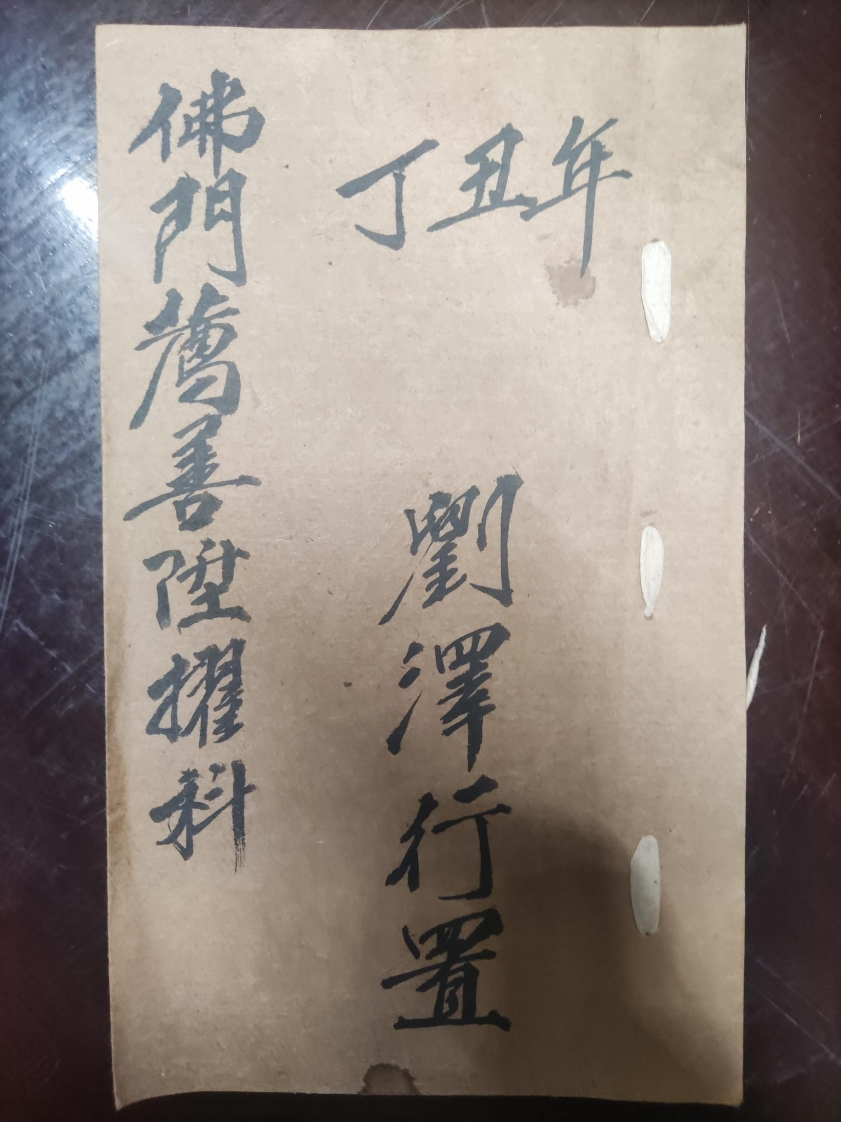 丁丑年
劉澤行置
佛門薦善陞擢科